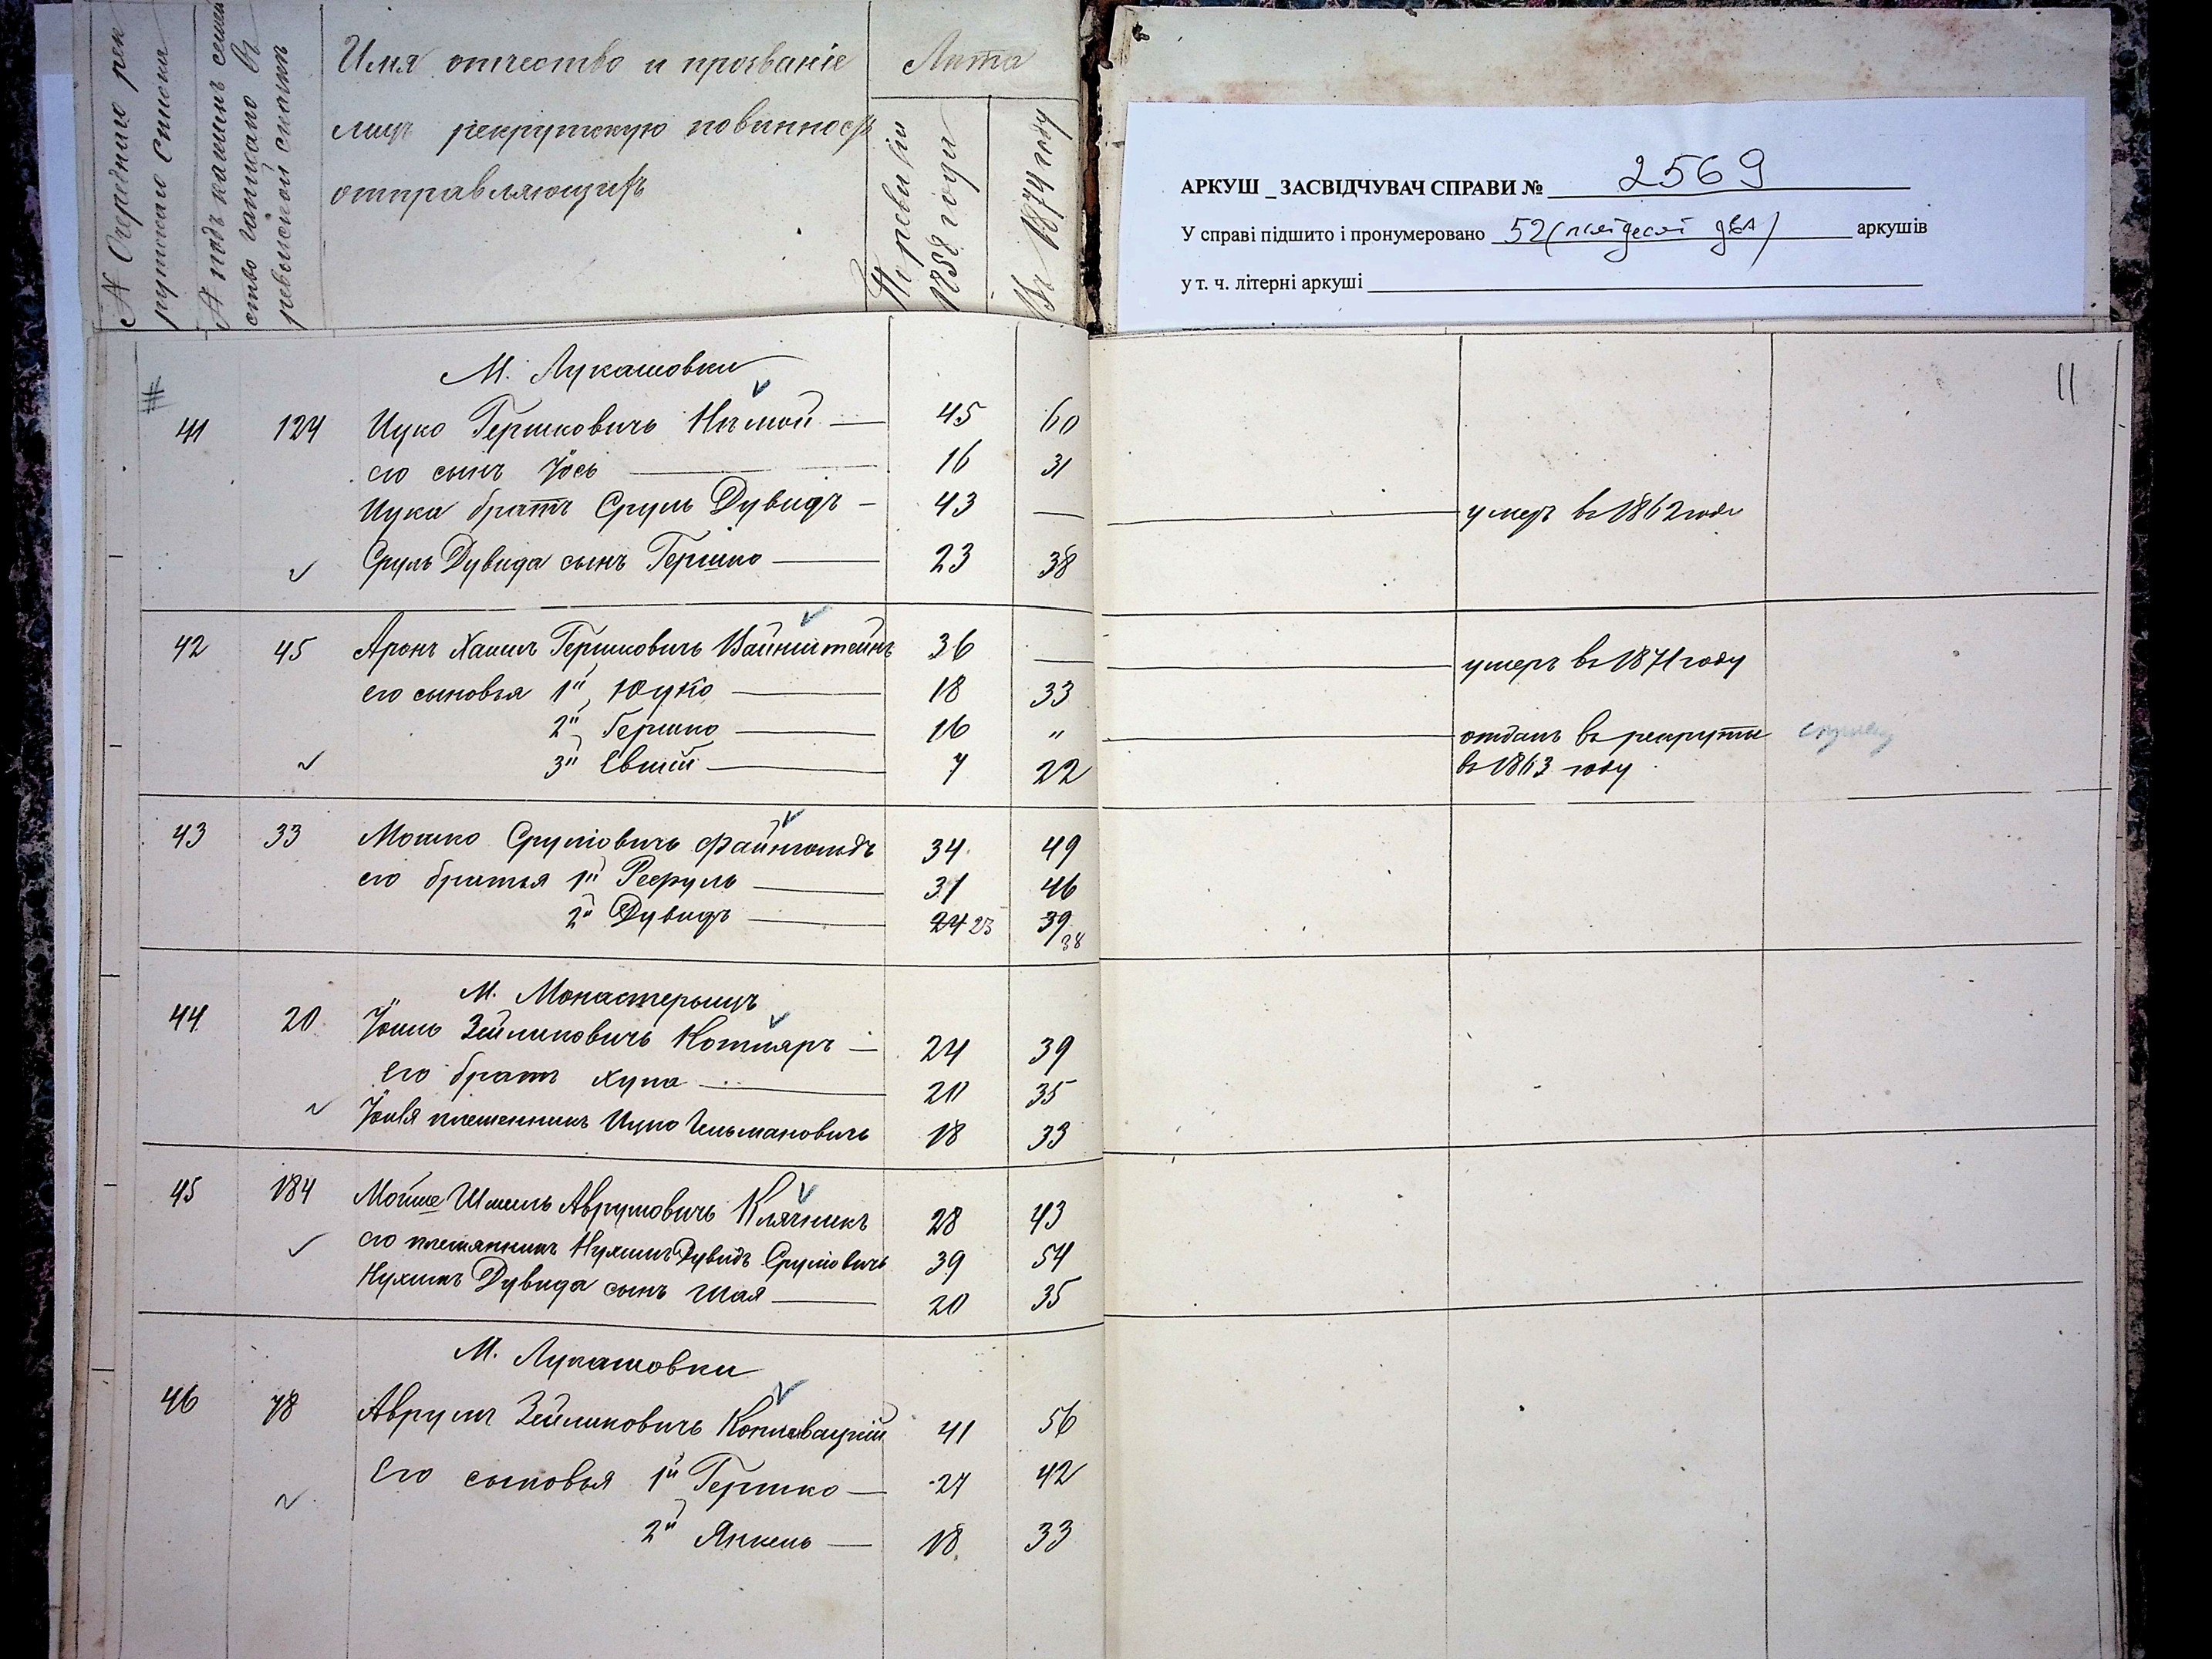 № Очередного рек
рутского списка
№ подъ какимъ семей
ство записано въ
ревизской сказкѣ
Имя отчество и прозваніе
лицъ рекрутскую повинность
отправляющихъ
Лѣта
По ревизіи
1858 года
Въ 1874 году
АРКУШ _ ЗАСВІДЧУВАЧ СПРАВИ № 2569
У справі підшито і пронумеровано 52 (пятдесят два) аркушів
у т. ч. літерні аркуші
11
М. Лукашовки
41 124 Ицко Гершковичъ Нѣмой 45 60
его сынъ Іось 16 31
Ицка братъ Сруль Дувидъ 43 — умеръ въ 1862 году
Сруль Дувида сынъ Гершко 23 38
42 45 Аронъ Хаимъ Гершковичъ Вайнштейнъ 36 — умеръ въ 1871 году
его сыновья 1й Юцко 18 33
2й Гершко 16 " отданъ въ рекруты
3й Евший 7 22 въ 1863 году
43 33 Мошко Срулiовичъ Файнгольдъ 34 49
его братья 1й Рефуль 31 46
2й Дувидъ 24 23 39 38
М. Монастерыщъ
44 20 Іоиль Зейликовичъ Котляръ 24 39
его братъ Хуна 20 35
Іоиля племенникъ Ицко Гельмановичъ 18 33
45 184 Мойше Шмиль Аврумовичъ Клячникъ 28 43
его племянникъ Нухимъ Дувидъ Срулiовичъ 39 54
Нухимъ Дувида сынъ Шая 20 35
М. Лукашовки
46 78 Аврумъ Зейликовичъ 41 56
Его сыновья 1й Гершко 27 42
2й Янкель 18 33